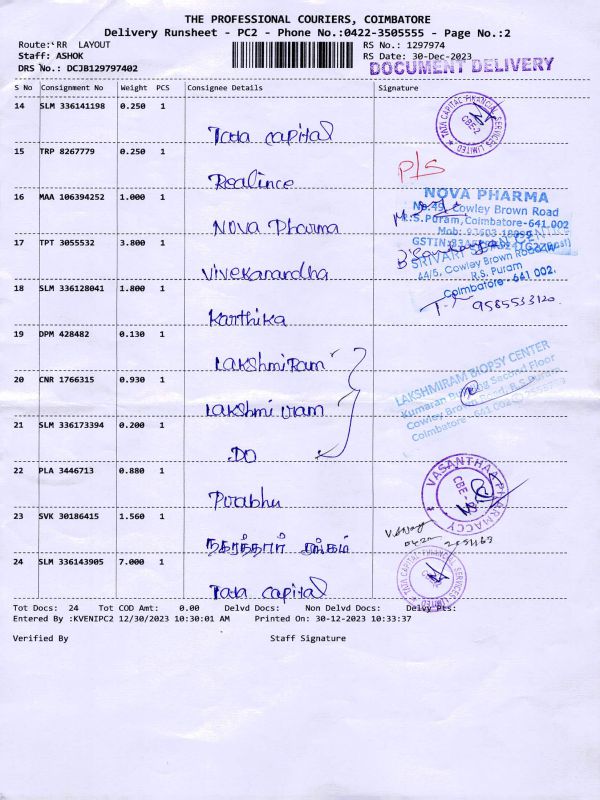 THE PROFESSIONAL COURIERS, COIMBATORE
Delivery Runsheet - PC2 - Phone No.:0422-3505555 - Page No.:2
Route: RR LAYOUT
Staff: ASHOK
DRS No.: DCJB129797402
RS No.: 1297974
RS Date: 30-Dec-2023
DOCUMENT DELIVERY
S No Consignment No Weight PCS Consignee Details Signature
14 SLM 336141198 0.250 1
Tata capital
TATA CAPITAL FINANCIAL SERVICES LIMITED
CBE-2
15 TRP 8267779 0.250 1
Realince
P/S
16 MAA 106394252 1.000 1
Nova Pharma
NOVA PHARMA
No.49, Cowley Brown Road
R.S.Puram, Coimbatore-641 002
Mob: 93603 18999
17 TPT 3055532 3.800 1
Vivekanandha
GSTIN:
SRIVARI
44/5, Cowley Brown Road
R.S. Puram
Coimbatore - 641 002.
18 SLM 336128041 1.800 1
Karthika
9585533120
19 DPM 428482 0.130 1
Lakshmi Ram
20 CNR 1766315 0.930 1
Lakshmi uram
LAKSHMIRAM BIOPSY CENTER
Kumaran Building Second Floor
Cowley Brown Road, R.S. Puram
Coimbatore - 641 002
21 SLM 336173394 0.200 1
DO
22 PLA 3446713 0.880 1
Prabhu
VASANTHAA PHARMACCY
CBE-
23 SVK 30186415 1.560 1
நகரத்தார் சங்கம்
24 SLM 336143905 7.000 1
Tata capital
TATA CAPITAL FINANCIAL SERVICES LIMITED
Tot Docs: 24 Tot COD Amt: 0.00 Delvd Docs: Non Delvd Docs: Delvy Pts:
Entered By :KVENIPC2 12/30/2023 10:30:01 AM Printed On: 30-12-2023 10:33:37
Verified By Staff Signature